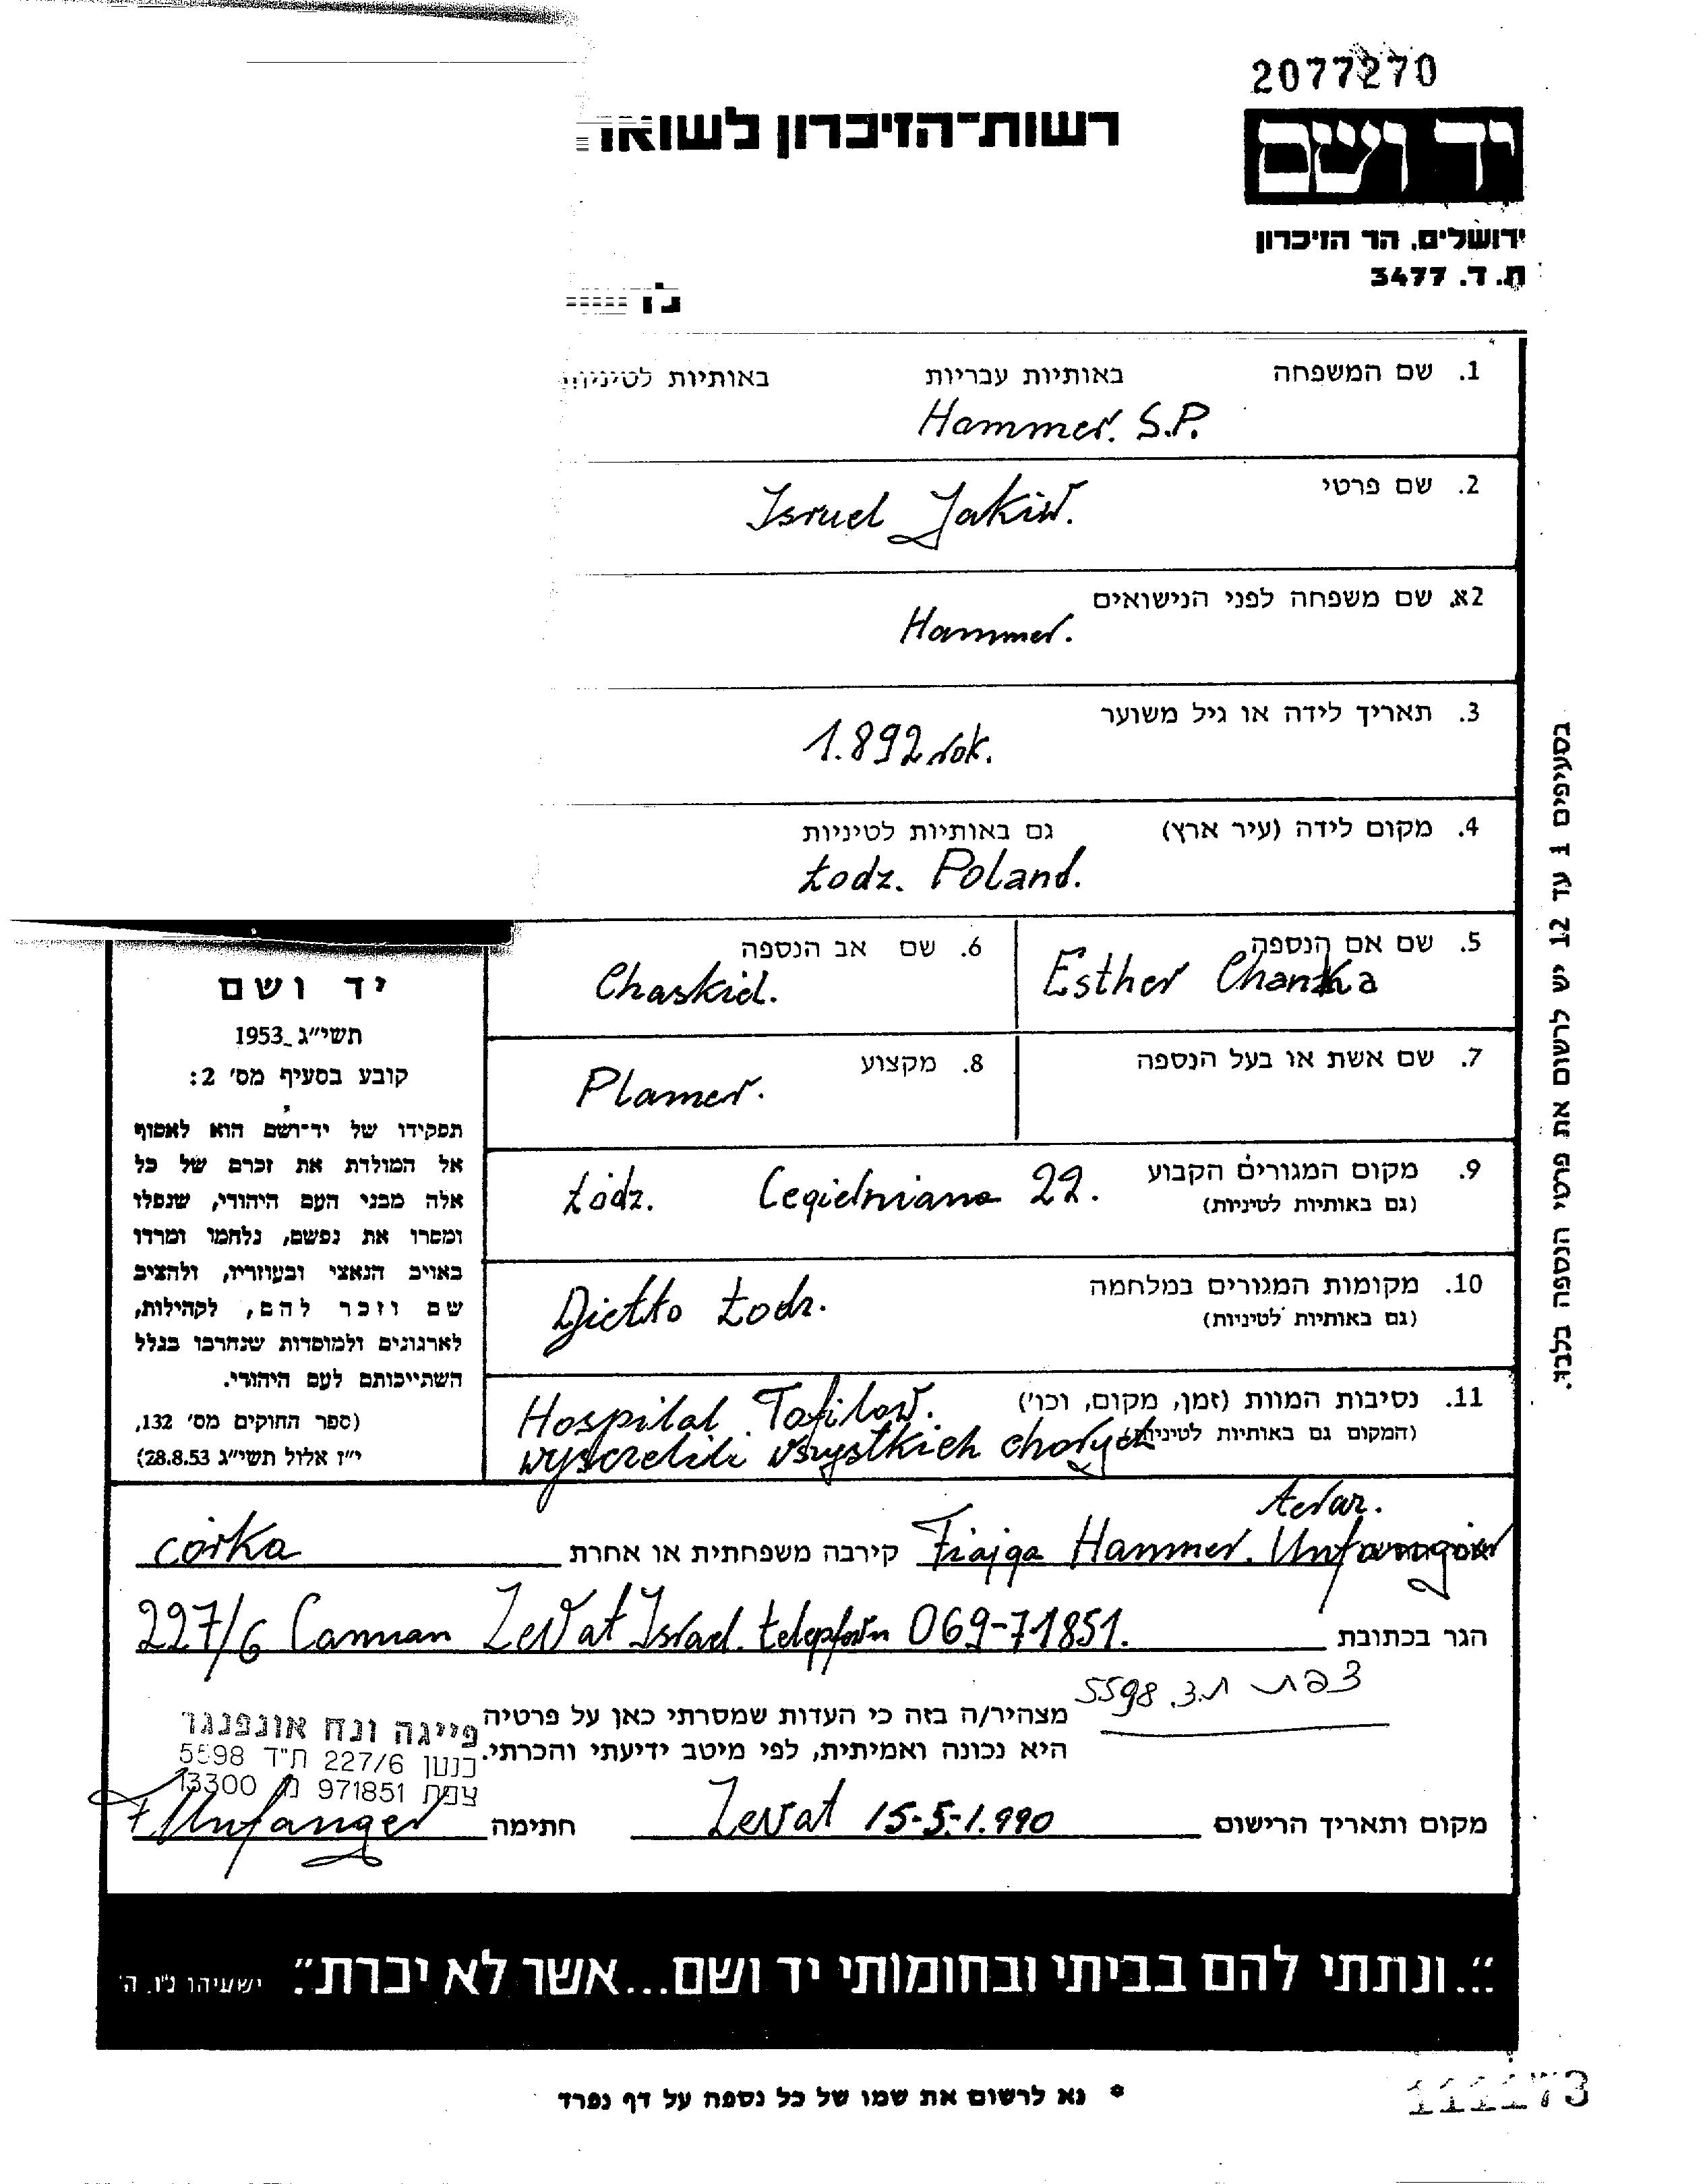 2077270
רשות־הזיכרון לשואה
יד ושם
ירושלים, הר הזיכרון
ת.ד. 3477
1. שם המשפחה באותיות עבריות באותיות לטיניות
Hammer. S.P.
2. שם פרטי
Isruel Jakiw.
2א. שם משפחה לפני הנישואים
Hammer.
3. תאריך לידה או גיל משוער
1.892 rok.
4. מקום לידה (עיר ארץ) גם באותיות לטיניות
Łodz. Poland.
5. שם אם הנספה 6. שם אב הנספה
Esther Chanka Chaskiel.
7. שם אשת או בעל הנספה 8. מקצוע
Plamer.
9. מקום המגורים הקבוע
(גם באותיות לטיניות)
Łódz. Cegielniana 22.
10. מקומות המגורים במלחמה
(גם באותיות לטיניות)
Łodz.
11. נסיבות המוות (זמן, מקום, וכו')
(המקום גם באותיות לטיניות)
Hospital
wszystkich chorych
יד ושם
תשי"ג 1953
קובע בסעיף מס' 2:
תפקידו של יד־ושם הוא לאסוף
אל המולדת את זכרם של כל
אלה מבני העם היהודי, שנפלו
ומסרו את נפשם, נלחמו ומרדו
באויב הנאצי ובעוזריו, ולהציב
שם וזכר להם, לקהילות,
לארגונים ולמוסדות שנחרבו בגלל
השתייכותם לעם היהודי.
(ספר החוקים מס' 132,
י"ז אלול תשי"ג 28.8.53)
בסעיפים 1 עד 12 יש לרשום את פרטי הנספה בלבד.
Fiajga Hammer. קירבה משפחתית או אחרת córka
הגר בכתובת 227/6 Cannan Israel. 069-71851.
צפת ת.ד. 5598
מצהיר/ה בזה כי העדות שמסרתי כאן על פרטיה
היא נכונה ואמיתית, לפי מיטב ידיעתי והכרתי.
פייגה ונח אונפנגר
כנען 227/6 ת"ד 5598
צפת 971851 מ 13300
מקום ותאריך הרישום Zevat 15-5-1.990 חתימה F Unfanger
"...ונתתי להם בביתי ובחומותי יד ושם...אשר לא יכרת" ישעיהו נ"ו, ה'
* נא לרשום את שמו של כל נספה על דף נפרד